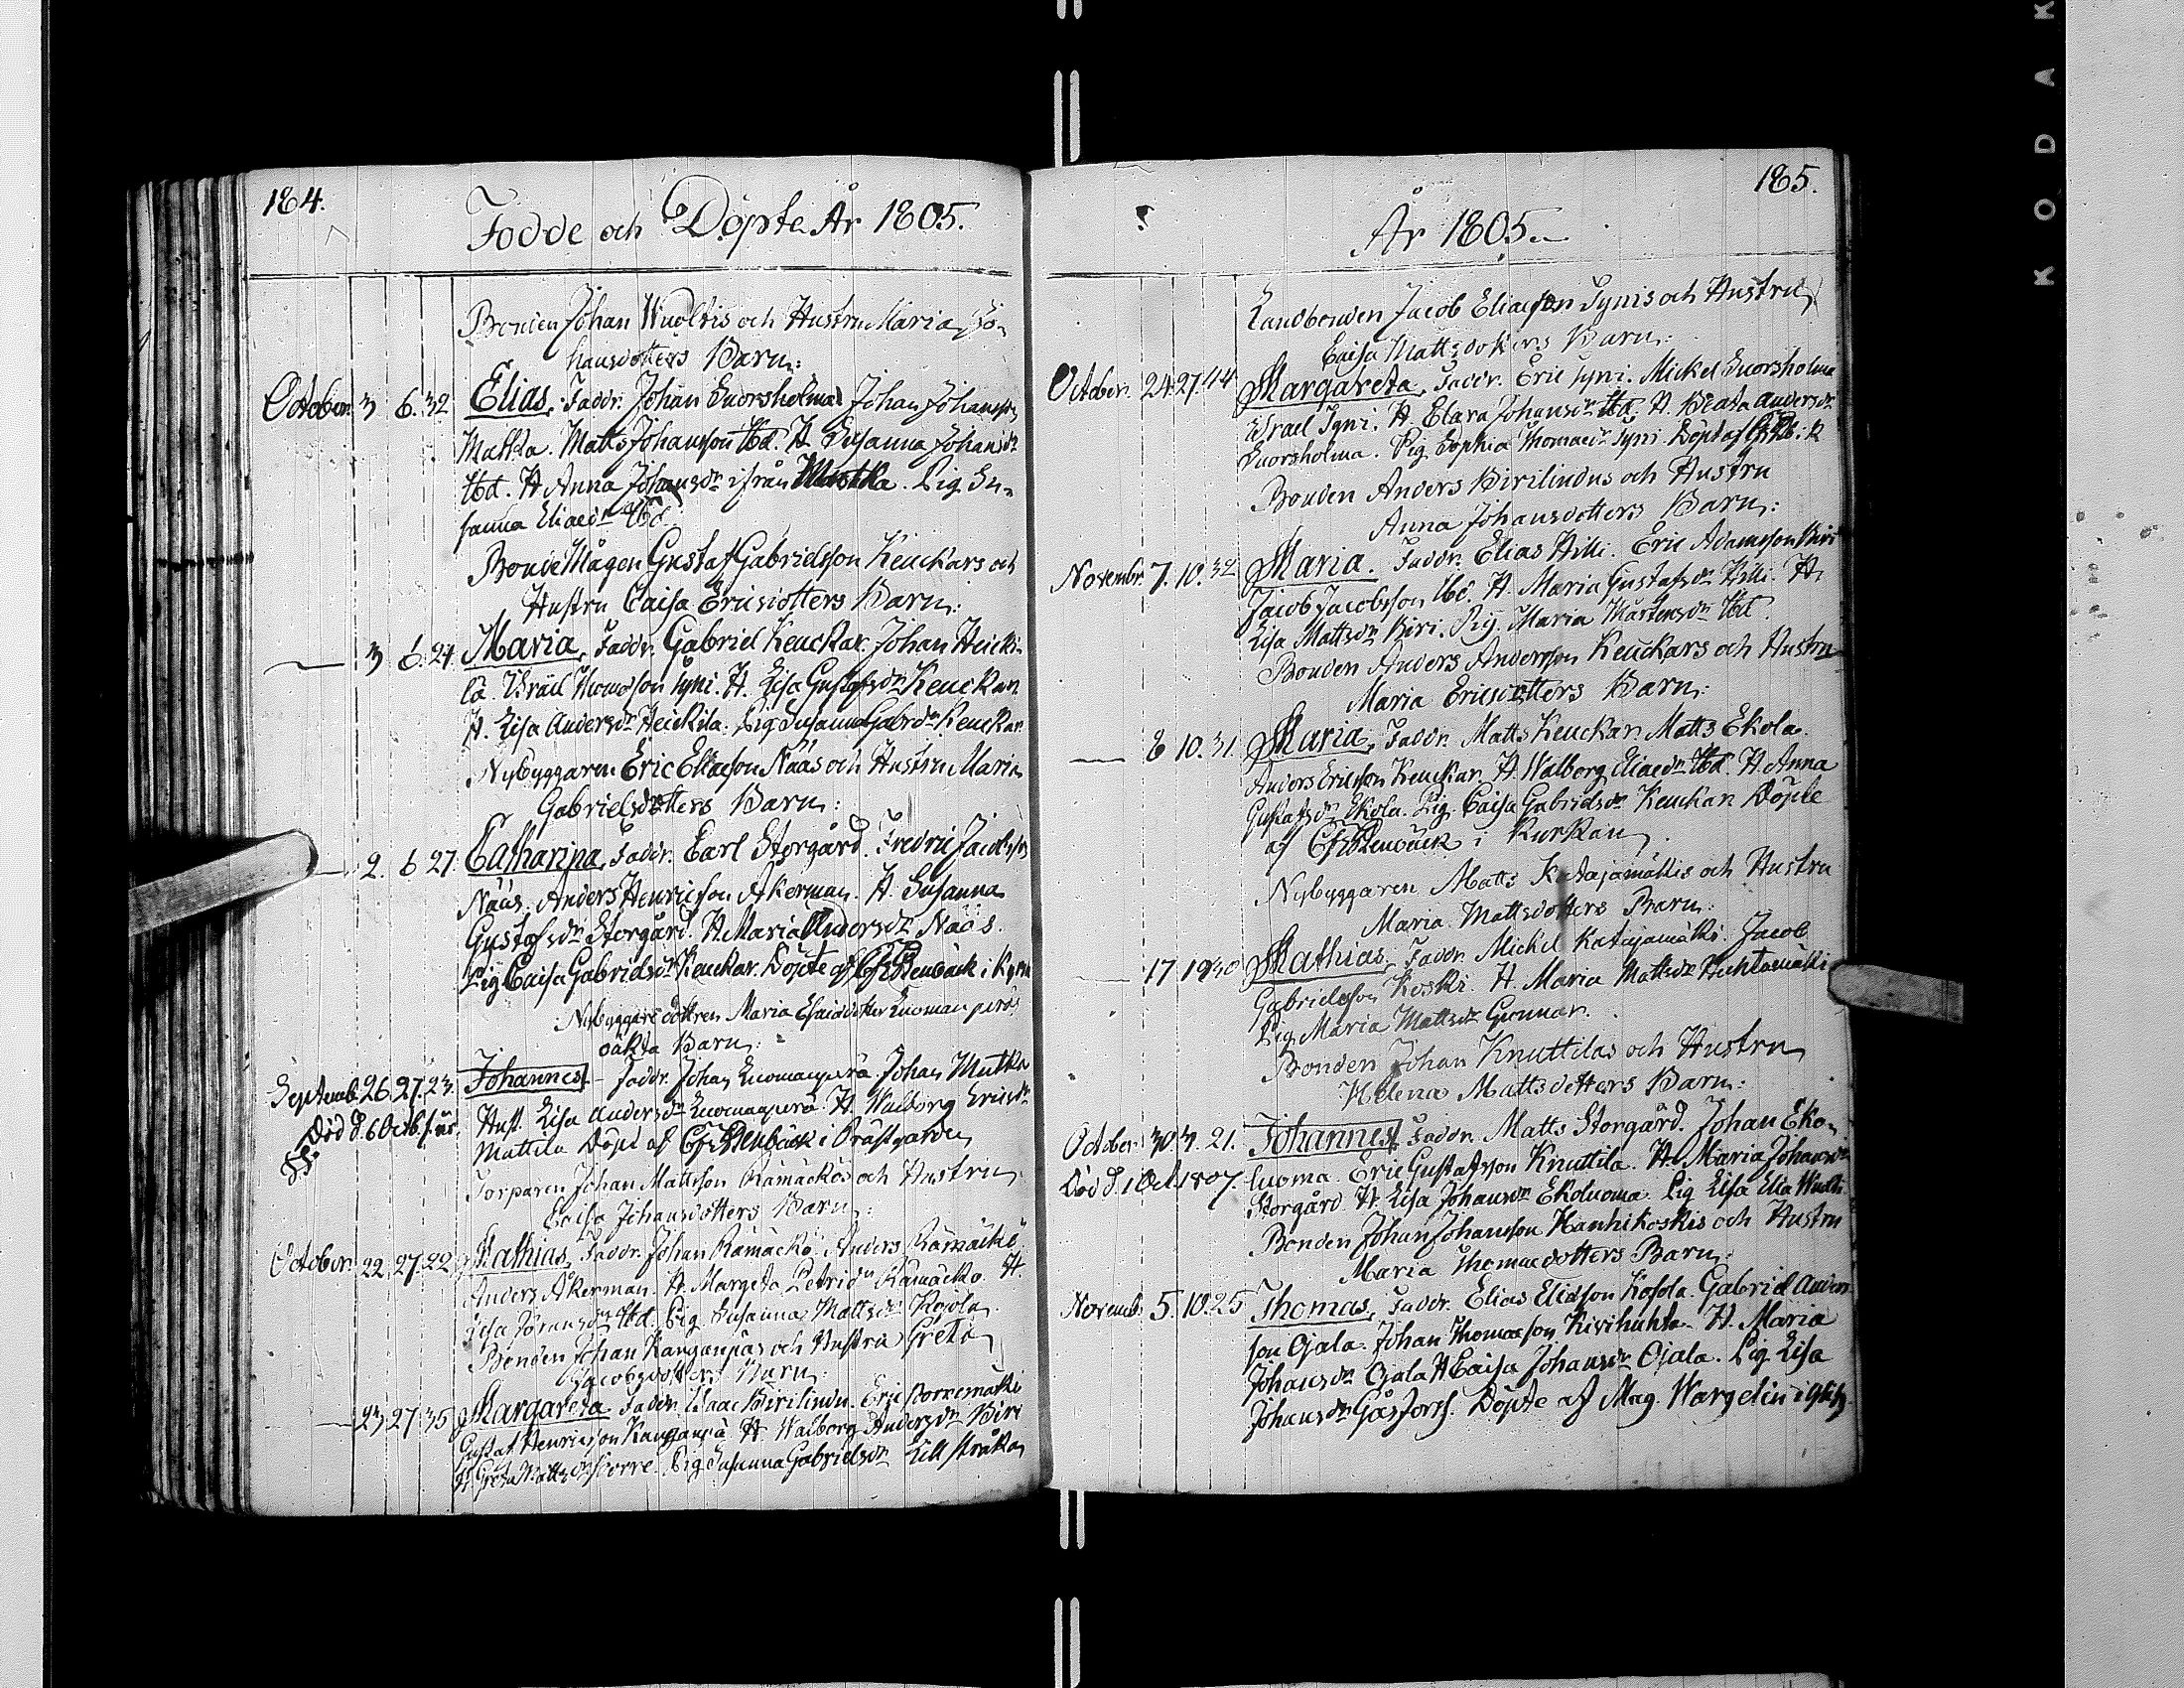 184.
Födde och Döpte År 1805.
Bonden Johan Wuoltis och Hustru Maria Jo-
hansdotters Barn:
October. 3 6. 32 Elias, Faddr. Johan Luorsholma Johan Johansson
Mattila. Matts Johansson Ibd. H. Susanna Johansdr
Ibd. H Anna Johansdr ifrån Mustka. Pig Su-
sanna Eliaedr Ibd.
BondeMågen Gustaf Gabrielsson Keuckars och
Hustru Caisa Ericsdotters Barn:
3 6. 24 Maria, Faddr. Gabriel Keuckar. Johan Heicki-
lä. Israel Thomasson Syni. H. Lisa Gustafsdr Keuckar
H. Lisa Andersdr Heickila. Pig Susanna Gabrdr Keuckar
Nybyggaren Eric Eliaeson Nääs och Hustru Maria
Gabrielsdotters Barn:
2. 6 27. Catharina, Faddr. Carl Storgård. Fredric Jacobsson
Nääs. Anders Henricsson Åkerman. H. Susanna
Gustafsdr Storgård. H. Maria Andersdr Nääs.
Pig Caisa Gabrielsdr Keuckar. Döpte af Stenbäck i Kyrk
Nybyggaredottren Maria Esaiædotter Luomanperäs
oäkta Barn:
Septemb. 26. 27. 23. Johannes. Faddr. Johan Luomanperä. Johan Mutka
Död d. 6 Octob. s. år. Hust. Lisa Andersdr Luomanperä. H. Walborg Ericsdr
Mattila Döpt af Stenbäck i Prästgården
Torparen Johan Mattsson Rämäckös och Hustru
Caisa Johansdotters Barn:
October. 22. 27. 22 Mathias, Faddr. Johan Rämäckö. Anders Rämäckö
Anders Åkerman. H. Margeta Petridr Rämäckö. H.
Lisa Johansdr Ibd. Pig Susanna Mattsdr Rojola
Bonden Johan Kanganpäs och Hustru Greta
Jacobsdotters Barn:
23 27 35 Margareta Faddr. Isaac Birilindu. Eric Porremäki
Gustaf Henricsson Kanganpä H. Walborg Andersdr Biri
H. Greta Mattsdr Porre. Pig Susanna Gabrielsdr Lillstråka
185.
År 1805.
Landbonden Jacob Eliaeson Synis och Hustru
Caisa Mattsdotters Barn:
October. 24. 27. 44 Margareta, Faddr. Eric Syni. Mickel Luorsholma
Israel Syni. H. Clara Johansdr Ibd. H. Beata Andersdr
Luorsholma. Pig Sophia Thomaedr Syni. Döpt af
Bonden Anders Birilindus och Hustru
Anna Johansdotters Barn:
Novembr. 7. 10. 32 Maria. Faddr. Elias Hilli. Eric Adamsson Biri
Jacob Jacobsson Ibd. H. Maria Gustafsdr Hilli. H.
Lisa Mattsdr Biri. Pig. Maria Mårtensdr Ibd.
Bonden Anders Andersson Keuckars och Hustru
Maria Ericsdotters Barn:
8 10. 31. Maria, Faddr. Matts Keuckar Matts Ekola.
Anders Ericsson Keuckar. H. Walborg Eliaedr Ibd. H. Anna
Gustafsdr Ekola. Pig. Caisa Gabrielsdr Keuckar Döpte
af Stenbäck i Kyrkan
Nybyggaren Matts Katajamäkis och Hustru
Maria Mattsdotters Barn:
17 19 30 Mathias, Faddr. Mickel Katajamäki. Jacob
Gabrielsson Koski. H. Maria Mattsdr Huhtamäki
Pig Maria Mattsdr Gunnar.
Bonden Johan Knuttilas och Hustru
Helena Mattsdotters Barn:
October 30. 3. 21. Johannes. Faddr. Matts Storgård. Johan Eko-
Död d. 1 Oct. 1807. luoma. Eric Gustafsson Knuttila. H. Maria Johansdr
Storgård H. Lisa Johansdr Ekoluoma. Pig Lisa Elia
Bonden Johan Johansson Hanhikoskis och Hustru
Maria Thomaedotters Barn:
Novemb. 5. 10. 25 Thomas, Faddr. Elias Eliasson Kosola. Gabriel Anders-
son Ojala. Johan Thomasson Kivihuhta. H. Maria
Johansdr Ojala H Caisa Johansdr Ojala. Pig Lisa
Johansdr Gåsfors. Döpte af Mag. Wargelin i
KODAK